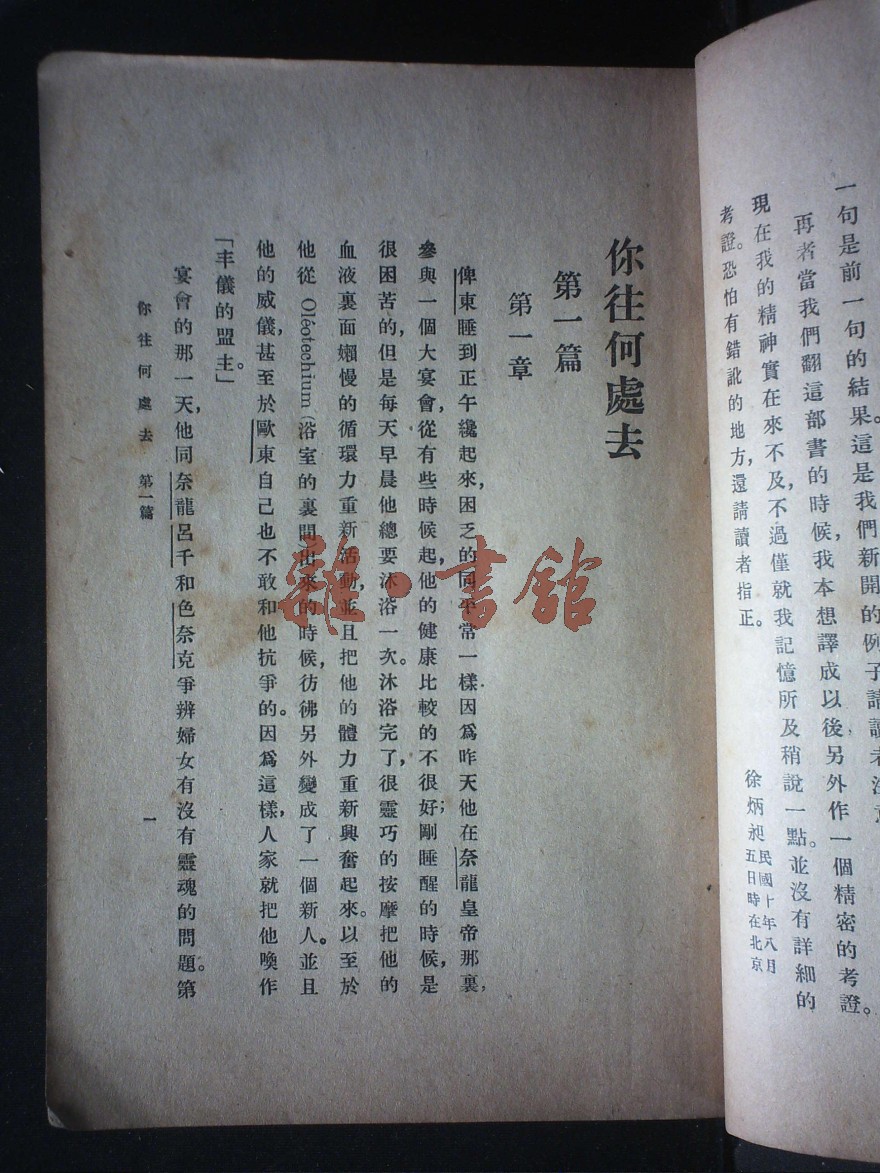 一句是前一句的結果。這是我們新開的例子請讀者
再者當我們翻這部書的時候，我本想譯成以後另外作一個精密的考證。
現在我的精神實在來不及，不過僅就我記憶所及稍說一點。並沒有詳細的
考證。恐怕有錯訛的地方，還請讀者指正。
徐炳昶 民國十年八月
五日時在北京
你往何處去
第一篇
第一章
俾東睡到正午纔起來，困乏的同平常一樣因爲昨天他在奈龍皇帝那裏，
參與一個大宴會，從有些時候起，他的健康比較的不很好；剛睡醒的時候，是
很困苦的，但是每天早晨他總要沐浴一次。沐浴完了，很靈巧的按摩把他的
血液裏面嬾慢的循環力重新活動，並且把他的體力重新興奮起來。以至於
他從 Oléotechium（浴室的裏間出來的時候，彷彿另外變成了一個新人。並且
他的威儀，甚至於歐東自己也不敢和他抗爭的。因爲這樣，人家就把他喚作
「丰儀的盟主。」
宴會的那一天，他同奈龍呂千和色奈克爭辨婦女有沒有靈魂的問題。第
你往何處去 第一篇
一
雜·書館